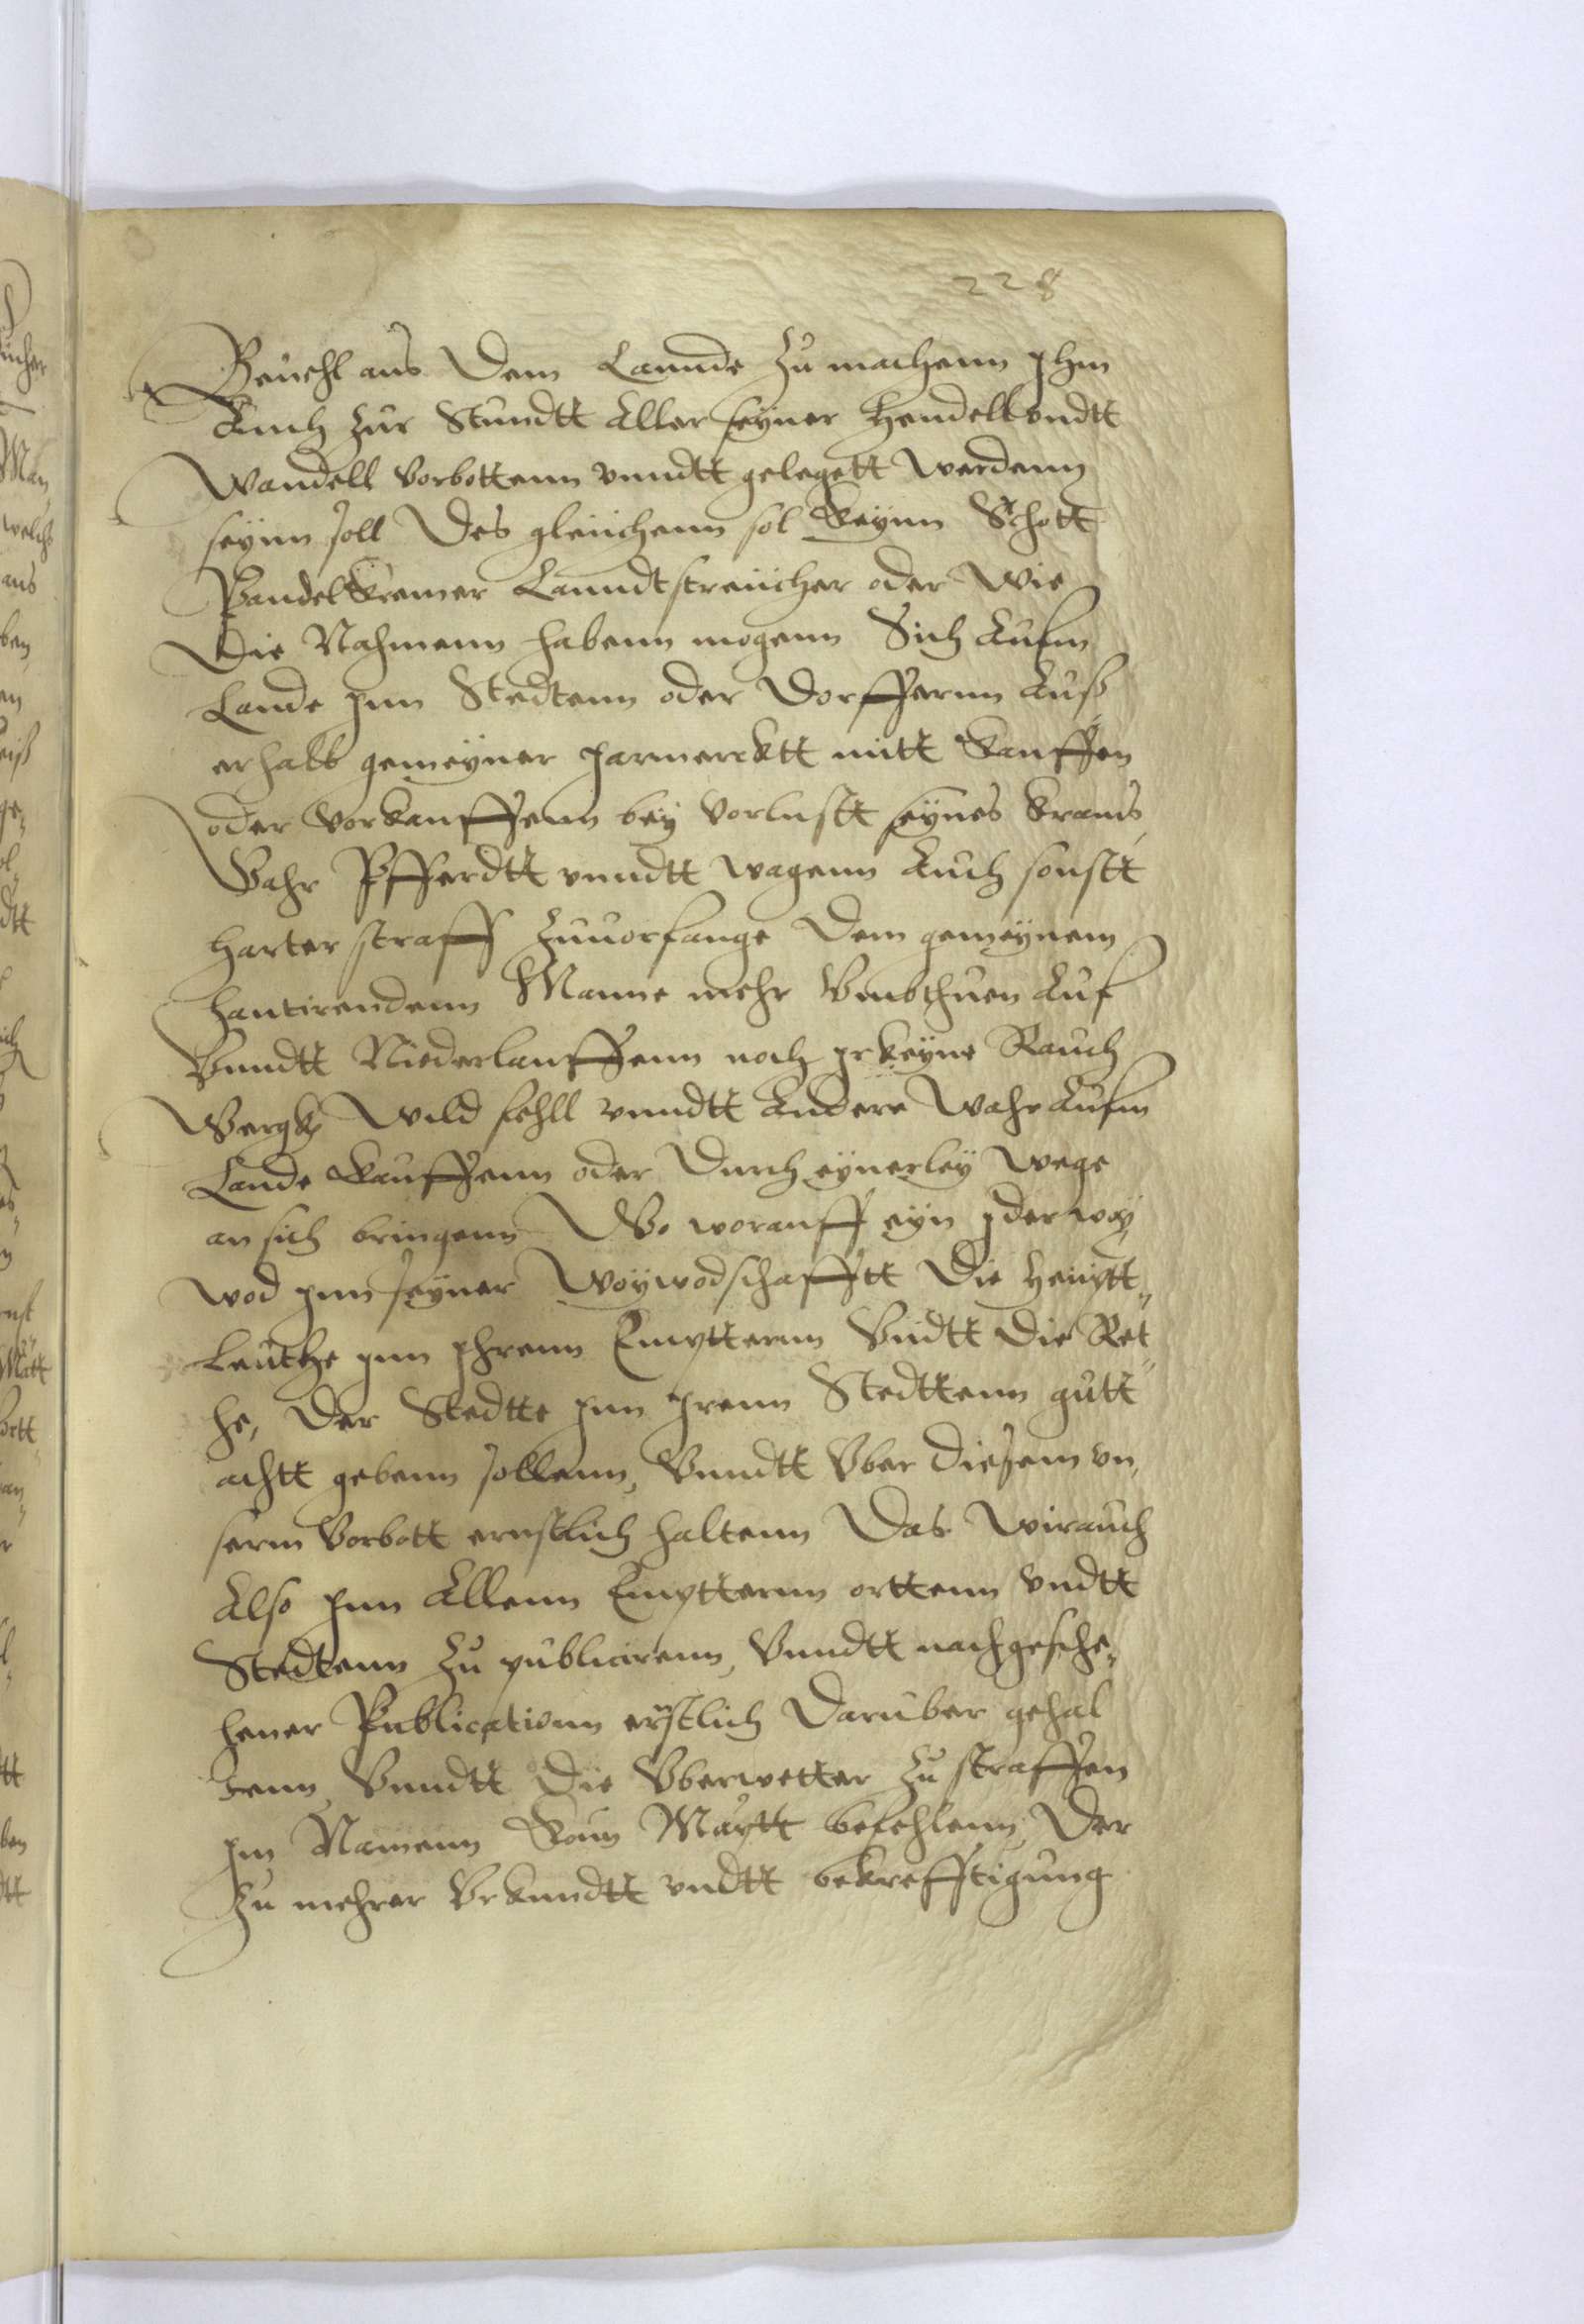 228
Beuehl aus Dem Lannde Zu machenn Ihm
Auch zur Stundtt Aller seyner Hendell vndtt
Wandell vorbottenn vnndtt gelegett werdenn
seynn soll Des gleichenn sol Keynn Schott
Pandel Kremer Lanndtstreicher oder wie
Die Nahmenn habenn mogenn Sich Aufm
Lande Inn Stedtenn oder Dorffernn Auß
erhalb gemeyner Jarmercktt mitt Kauffen
oder vorkauffenn bey vorlustt seynes krams
Wahr Pfferdtt vnndtt wagenn Auch sonstt
harter straff Zuuorfange Dem gemeynem
hantirendenn Manne mehr Vmbthuen Auf
Vnndtt Niederlauffenn noch Irkeyne Rauch
Wergk Wild fehll vnndtt Andere Wahr Aufm
Lande Kauffenn oder Durch eynerley Wege
an sich bringenn Wo worauff eyn Jder Woy,
wod Inn seyner Woywodschafftt Die Heuptt„
Leuthe Inn Ihrenn Emptternn Vndtt Die Ret„
he, Der Stedtte Inn Irenn Stedttenn gutt
achtt gebenn sollenn, Vnndtt Vber Diesem vn,
serm Vorbott ernstlich haltenn Das Wir auch
Also Inn Allenn Emptternn orttenn vndtt
Stedtenn Zu publicirenn, Vnndtt nachgesche,
hener Publicationn ernstlich Daruber gehal
tenn, Vnndtt Die Vberwetter Zu straffen
Im Namenn Konn Maytt befehlenn, Der
Zu mehrer Vrkundtt vndtt bekrefftigung